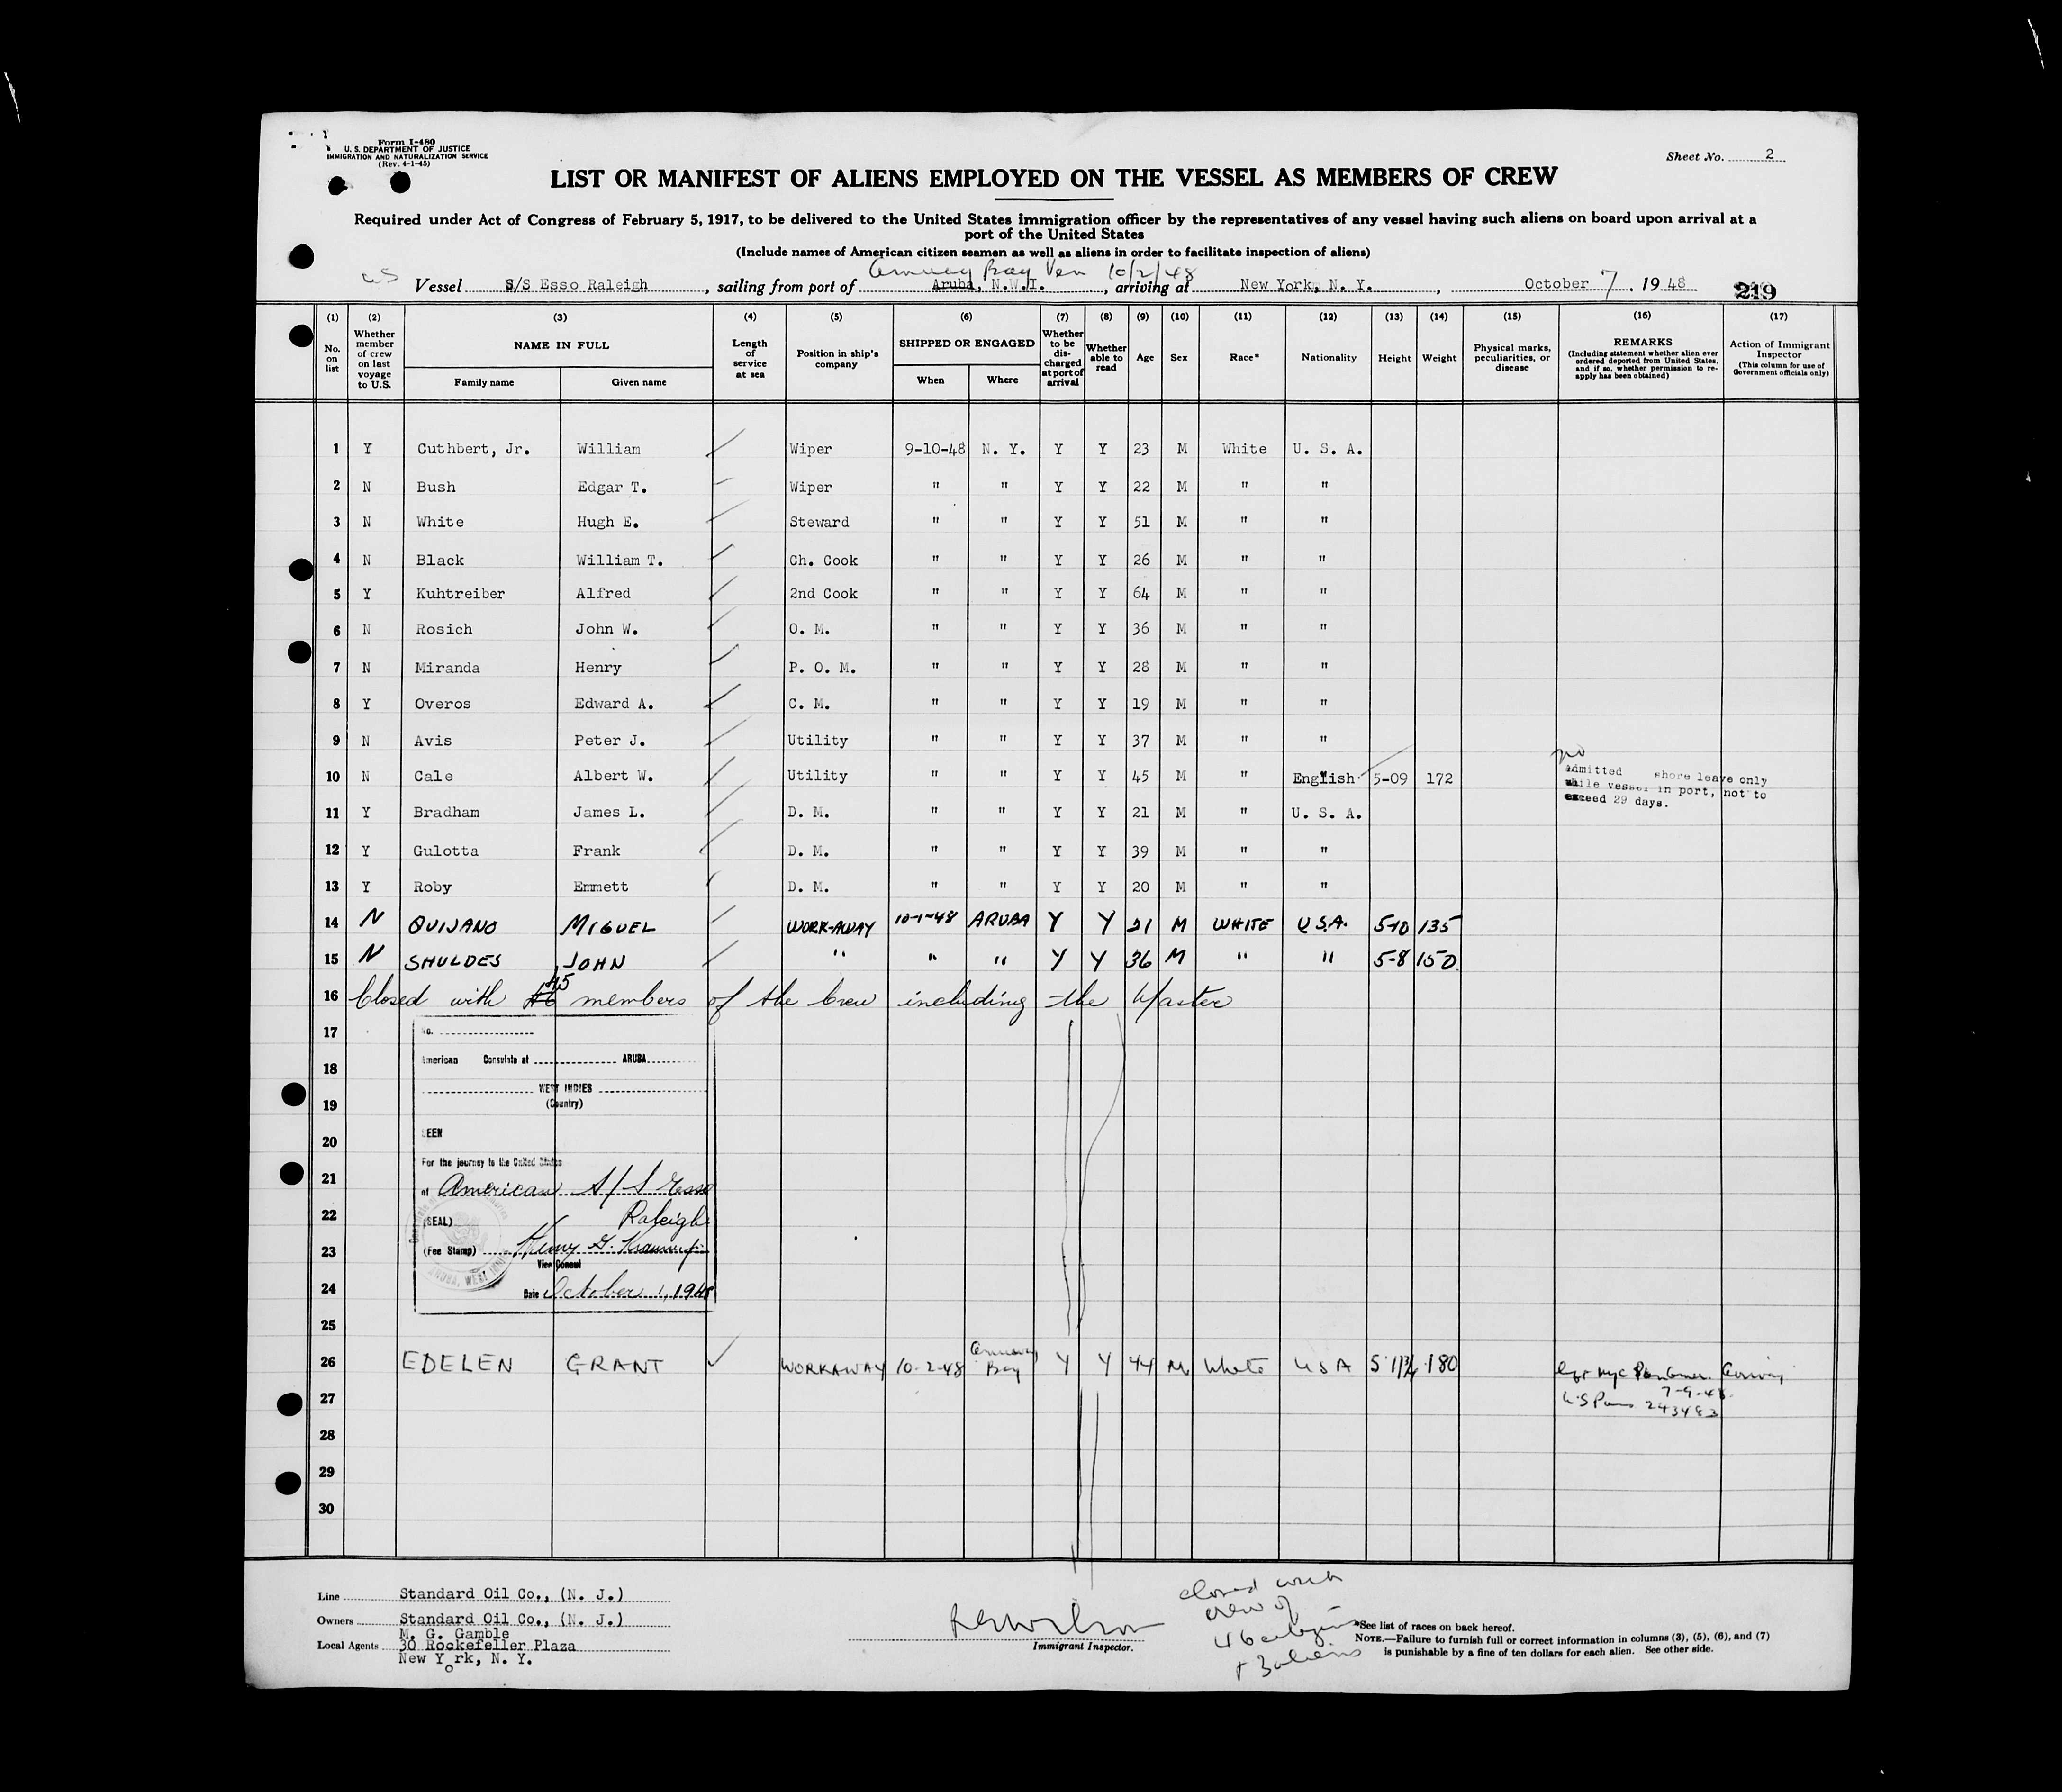 Form I-480
U. S. DEPARTMENT OF JUSTICE
IMMIGRATION AND NATURALIZATION SERVICE
(Rev. 4-1-45)
Sheet No. 2
LIST OR MANIFEST OF ALIENS EMPLOYED ON THE VESSEL AS MEMBERS OF CREW
Required under Act of Congress of February 5, 1917, to be delivered to the United States immigration officer by the representatives of any vessel having such aliens on board upon arrival at a
port of the United States
(Include names of American citizen seamen as well as aliens in order to facilitate inspection of aliens)
Bay Ven 10/2/48
Vessel S/S Esso Raleigh, sailing from port of Aruba, N.W.I., arriving at New York, N. Y., October 7, 1948
219
(1) (2) (3) (4) (5) (6) (7) (8) (9) (10) (11) (12) (13) (14) (15) (16) (17)
No. on list Whether member of crew on last voyage to U.S. NAME IN FULL Family name Given name Length of service at sea Position in ship's company SHIPPED OR ENGAGED When Where Whether to be discharged at port of arrival Whether able to read Age Sex Race* Nationality Height Weight Physical marks, peculiarities, or disease REMARKS (Including statement whether alien ever ordered deported from United States, and if so, whether permission to re-apply has been obtained) Action of Immigrant Inspector (This column for use of Government officials only)
1 Y Cuthbert, Jr. William Wiper 9-10-48 N. Y. Y Y 23 M White U. S. A.
2 N Bush Edgar T. Wiper " " Y Y 22 M " "
3 N White Hugh E. Steward " " Y Y 51 M " "
4 N Black William T. Ch. Cook " " Y Y 26 M " "
5 Y Kuhtreiber Alfred 2nd Cook " " Y Y 64 M " "
6 N Rosich John W. O. M. " " Y Y 36 M " "
7 N Miranda Henry P. O. M. " " Y Y 28 M " "
8 Y Overos Edward A. C. M. " " Y Y 19 M " "
9 N Avis Peter J. Utility " " Y Y 37 M " "
10 N Cale Albert W. Utility " " Y Y 45 M " English 5-09 172
admitted shore leave only
while vessel in port, not to
exceed 29 days.
11 Y Bradham James L. D. M. " " Y Y 21 M " U. S. A.
12 Y Gulotta Frank D. M. " " Y Y 39 M " "
13 Y Roby Emmett D. M. " " Y Y 20 M " "
14 N QUIJANO MIGUEL WORK-AWAY 10-1-48 ARUBA Y Y 21 M WHITE U.S.A. 5-10 135
15 N SHULDES JOHN " " " Y Y 36 M " " 5-8 150
16 Closed with 45 members of the Crew including the Master
17 No.
18 American Consulate at ARUBA
WEST INDIES
19 (Country)
20 SEEN
For the journey to the United States
21 of American S/S Esso
22 Raleigh
(SEAL)
23 (Fee Stamp) Henry G.
Vice Consul
24 Date October 1, 1948
ARUBA, WEST
25
26 EDELEN GRANT WORKAWAY 10-2-48 Bay Y Y 44 M White USA 5'11 3/4 180
7-9-48
27 US 243483
28
29
30
Line Standard Oil Co., (N. J.)
Owners Standard Oil Co., (N. J.)
M. G. Gamble
Local Agents 30 Rockefeller Plaza
New York, N. Y.
Immigrant Inspector.
closed with
crew of
46
+ 3 aliens
*See list of races on back hereof.
NOTE.—Failure to furnish full or correct information in columns (3), (5), (6), and (7)
is punishable by a fine of ten dollars for each alien. See other side.